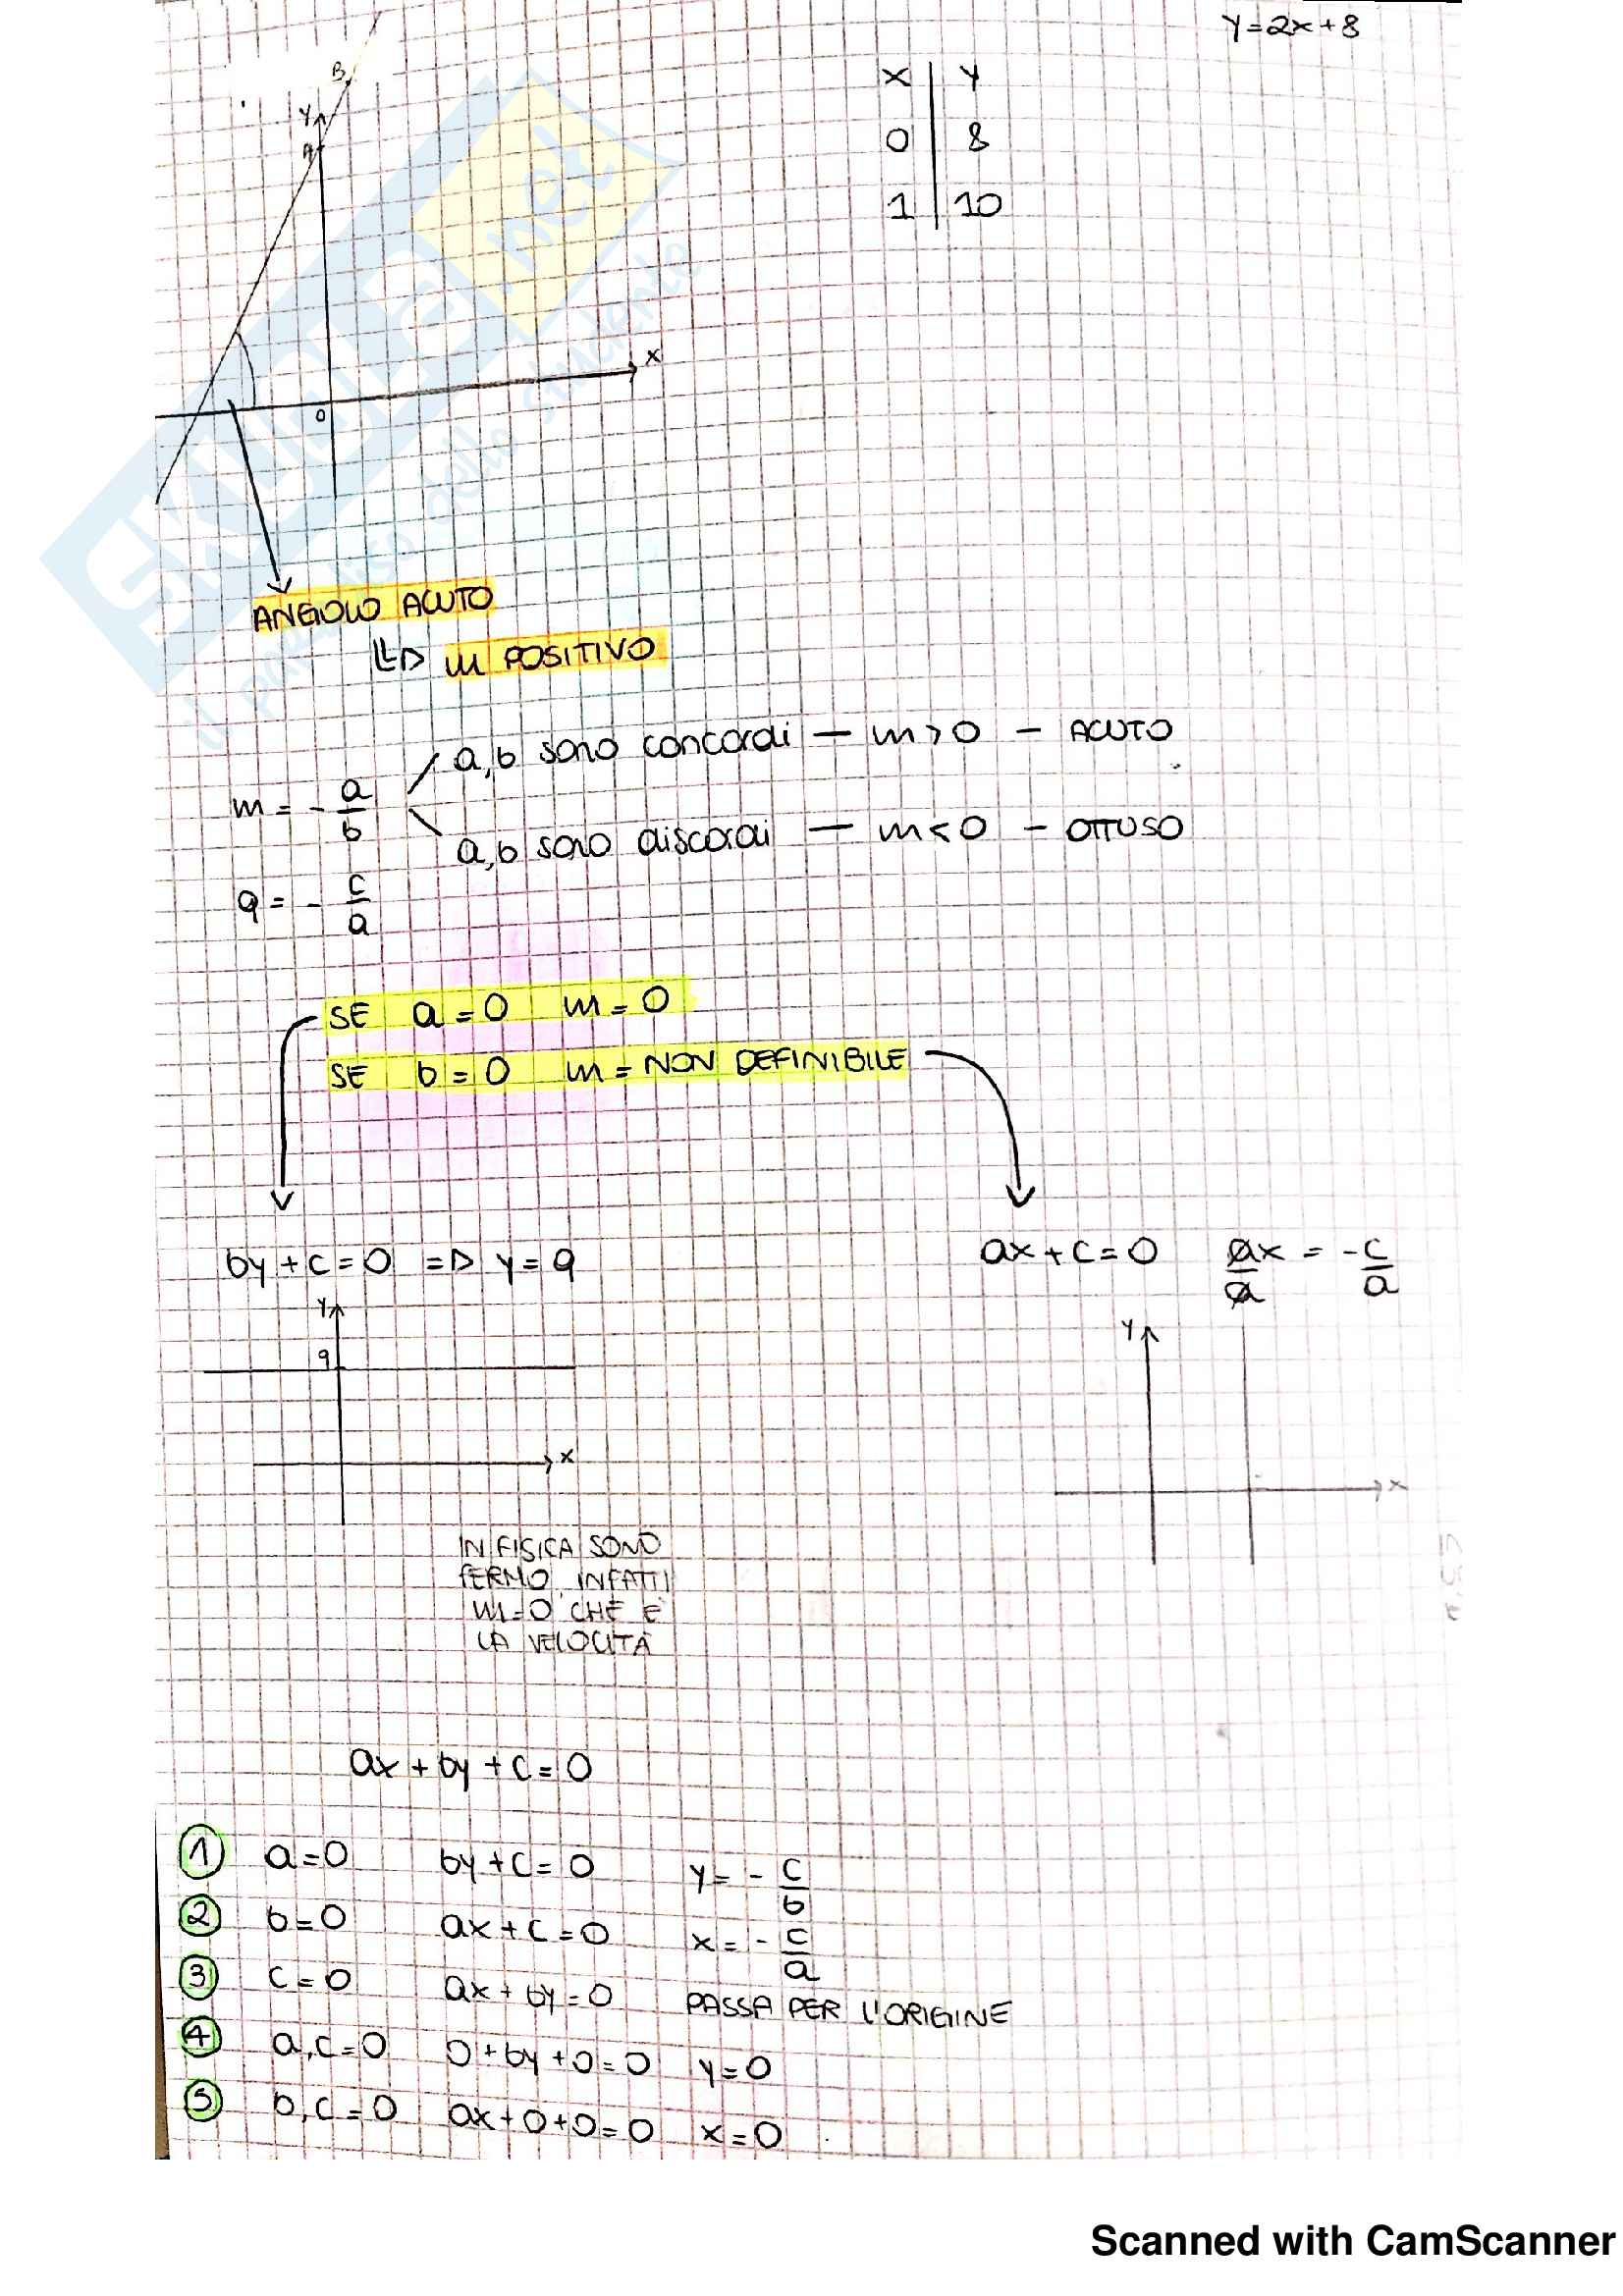 y=2x+8
x | y
0 | 8
1 | 10
B
y
A
x
0
ANGOLO ACUTO
m POSITIVO
a,b sono concordi — m>0 — ACUTO
m = - a/b
a,b sono discordi — m<0 — OTTUSO
q = - c/a
SE a=0 m=0
SE b=0 m= NON DEFINIBILE
by+c=0 => y=q
ax+c=0 ax/a = -c/a
y
q
x
y
x
IN FISICA SONO
FERMO INFATTI
m=0 CHE È
LA VELOCITÀ
ax+by+c=0
1 a=0 by+c=0 y= - c/b
2 b=0 ax+c=0 x= - c/a
3 c=0 ax+by=0 PASSA PER L'ORIGINE
4 a,c=0 0+by+0=0 y=0
5 b,c=0 ax+0+0=0 x=0
SKUOLA.net
il paradiso dello studente
Scanned with CamScanner